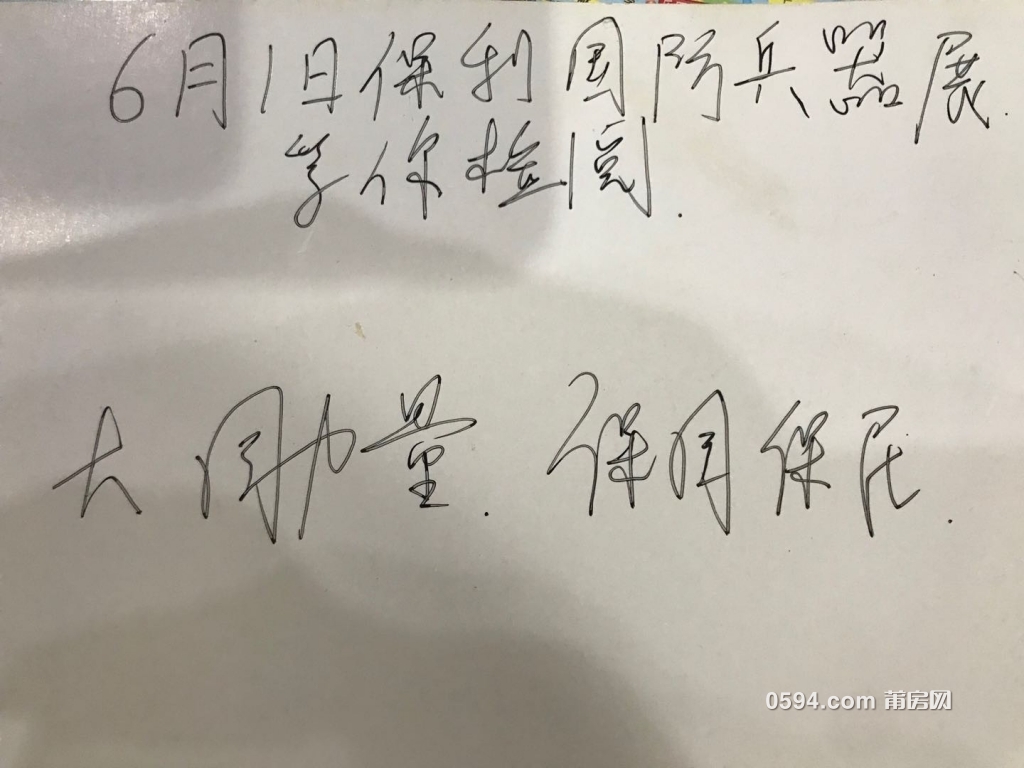 6月1日保利国防兵器展.
等你检阅.
大国力量. 保国保民.
0594.com 莆房网